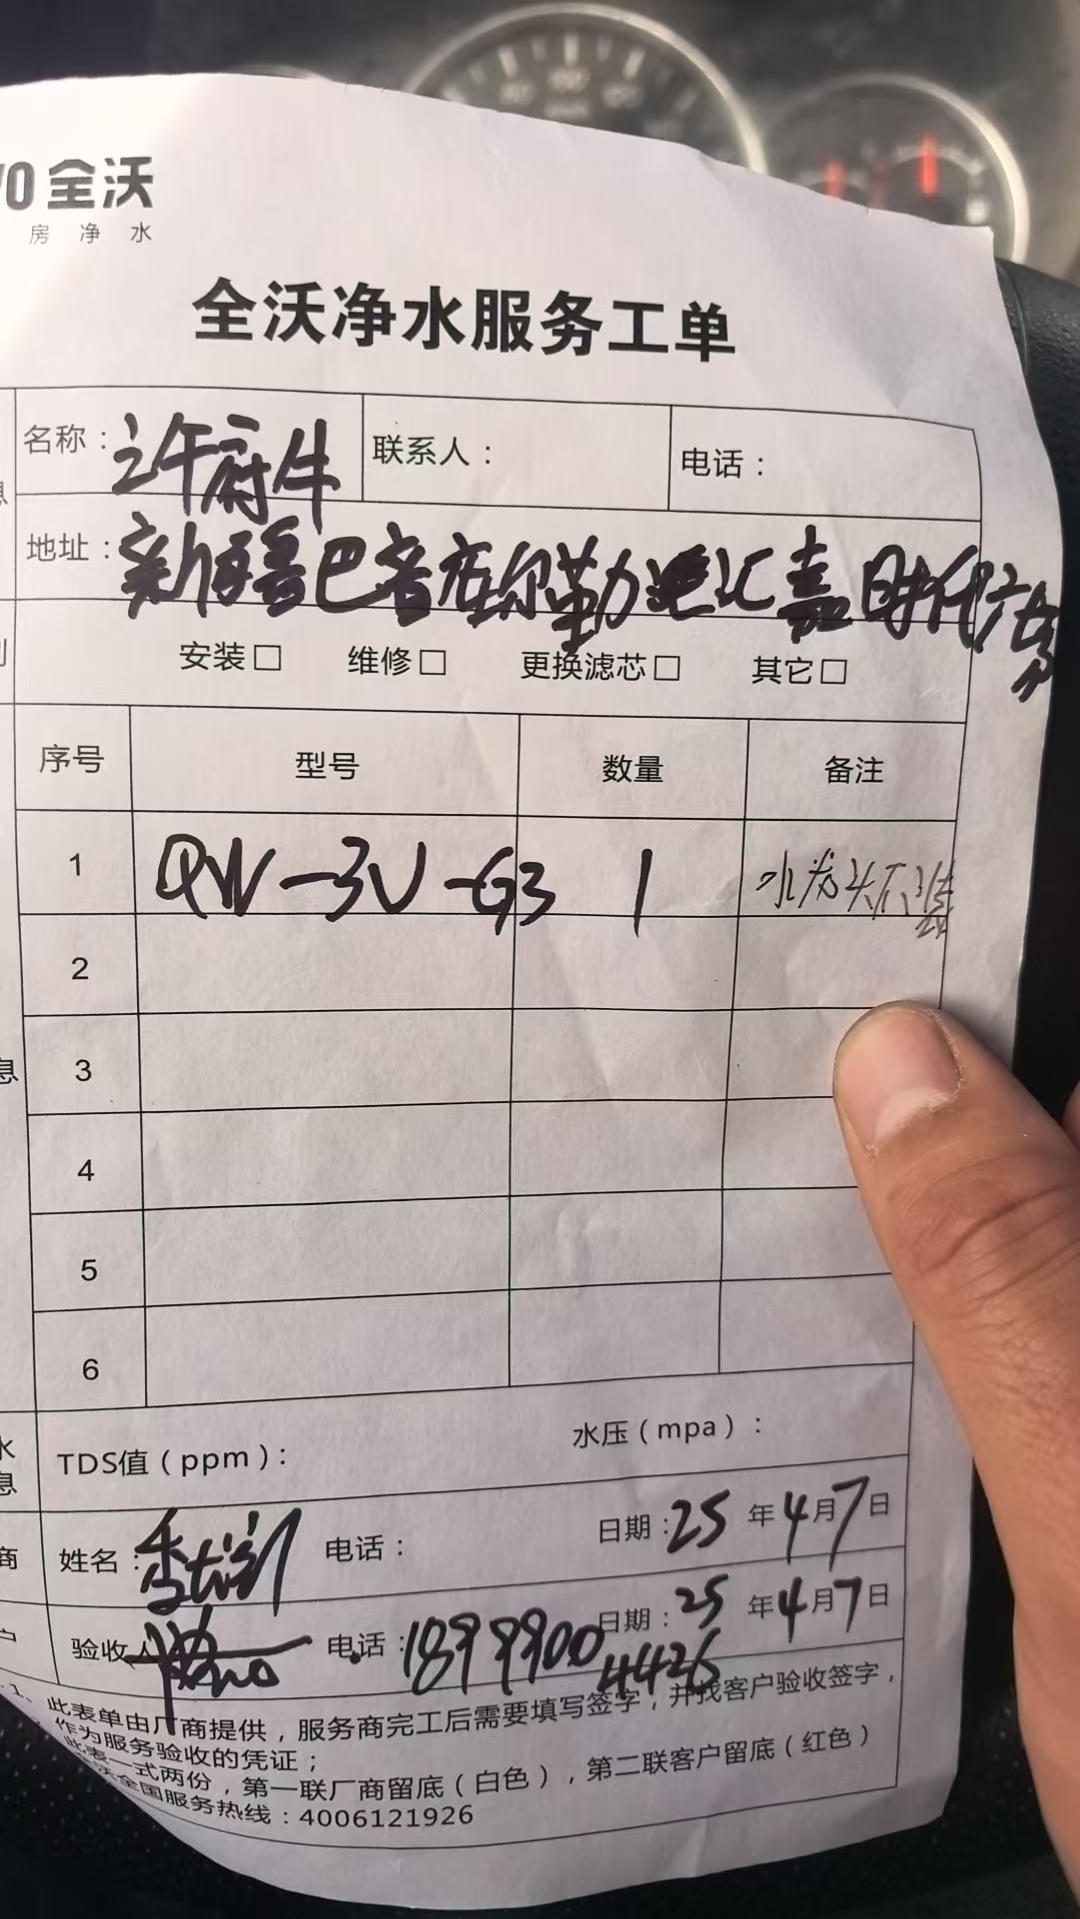 VO 全沃
房净水
全沃净水服务工单
名称： 联系人： 电话：
息
地址：新疆巴音 勒 汇嘉时代广场
别 安装□ 维修□ 更换滤芯□ 其它□
序号 型号 数量 备注
1 QW-3U-G3 1 水 头不
2
3
息
4
5
6
水息 TDS值（ppm）： 水压（mpa）：
商 姓名： 电话： 日期：25年4月7日
户 验收人 电话：18999004426 日期：25年4月7日
1、此表单由厂商提供，服务商完工后需要填写签字，并找客户验收签字，
作为服务验收的凭证；
此表一式两份，第一联厂商留底（白色），第二联客户留底（红色）
沃全国服务热线：4006121926